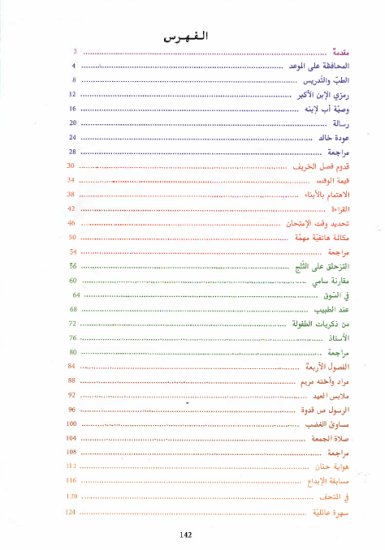 الفهرس
مقدمة 3
المحافظة على الموعد 4
الطبّ والتدريس 8
رمزي الإبن الأكبر 12
وصيّة أب لابنه 16
رسالة 20
عودة خالد 24
مراجعة 28
قدوم فصل الخريف 30
قيمة الوقت 34
الاهتمام بالأبناء 38
القراءة 42
تحديد وقت الإمتحان 46
مكالمة هاتفيّة مهمّة 50
مراجعة 54
التزحلق على الثلج 56
مقارنة سامي 60
في السّوق 64
عند الطبيب 68
من ذكريات الطفولة 72
الأستاذ 76
مراجعة 80
الفصول الأربعة 84
مراد وأخته مريم 88
ملابس العيد 92
الرسول ص قدوة 96
مساوئ الغضب 100
صلاة الجمعة 104
مراجعة 108
هواية حنان 112
مسابقة الإبداع 116
في المتحف 120
سهرة عائليّة 124
142